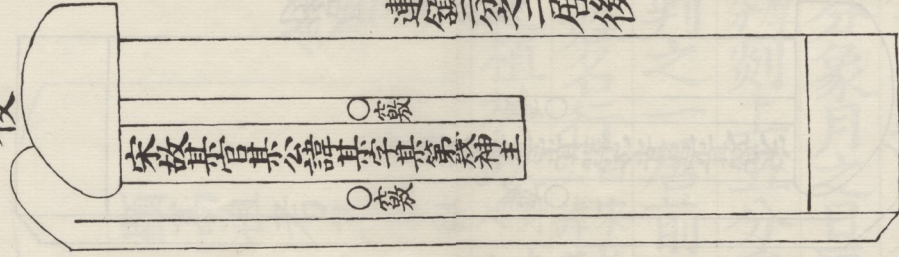 三分二居後
○竅
宋故某官某公諱某字某第幾神主
○竅